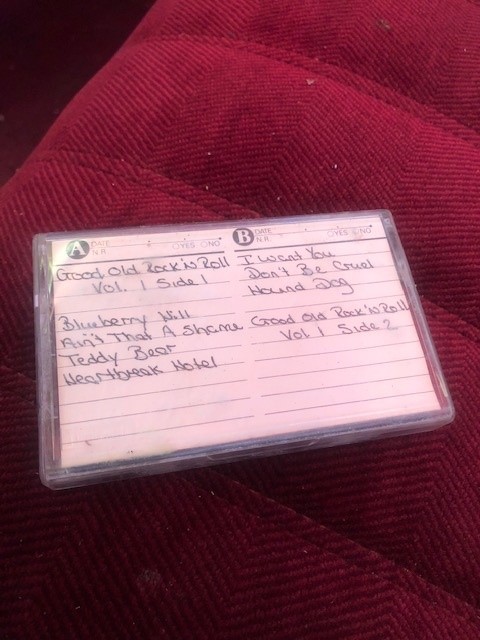 A DATE N.R. YES NO
Good Old Rock'n Roll
Vol. 1 Side 1
Blueberry Hill
Ain't That A Shame
Teddy Bear
Heartbreak Hotel
B DATE N.R. YES NO
I Want You
Don't Be Cruel
Hound Dog
Good Old Rock'n Roll
Vol 1 Side 2